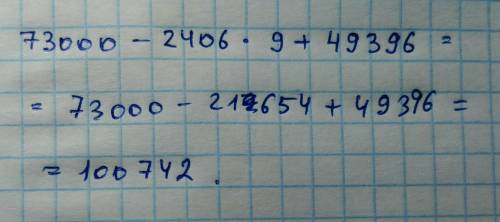 73000 - 2406 · 9 + 49396 =
= 73000 - 21654 + 49396 =
= 100742.